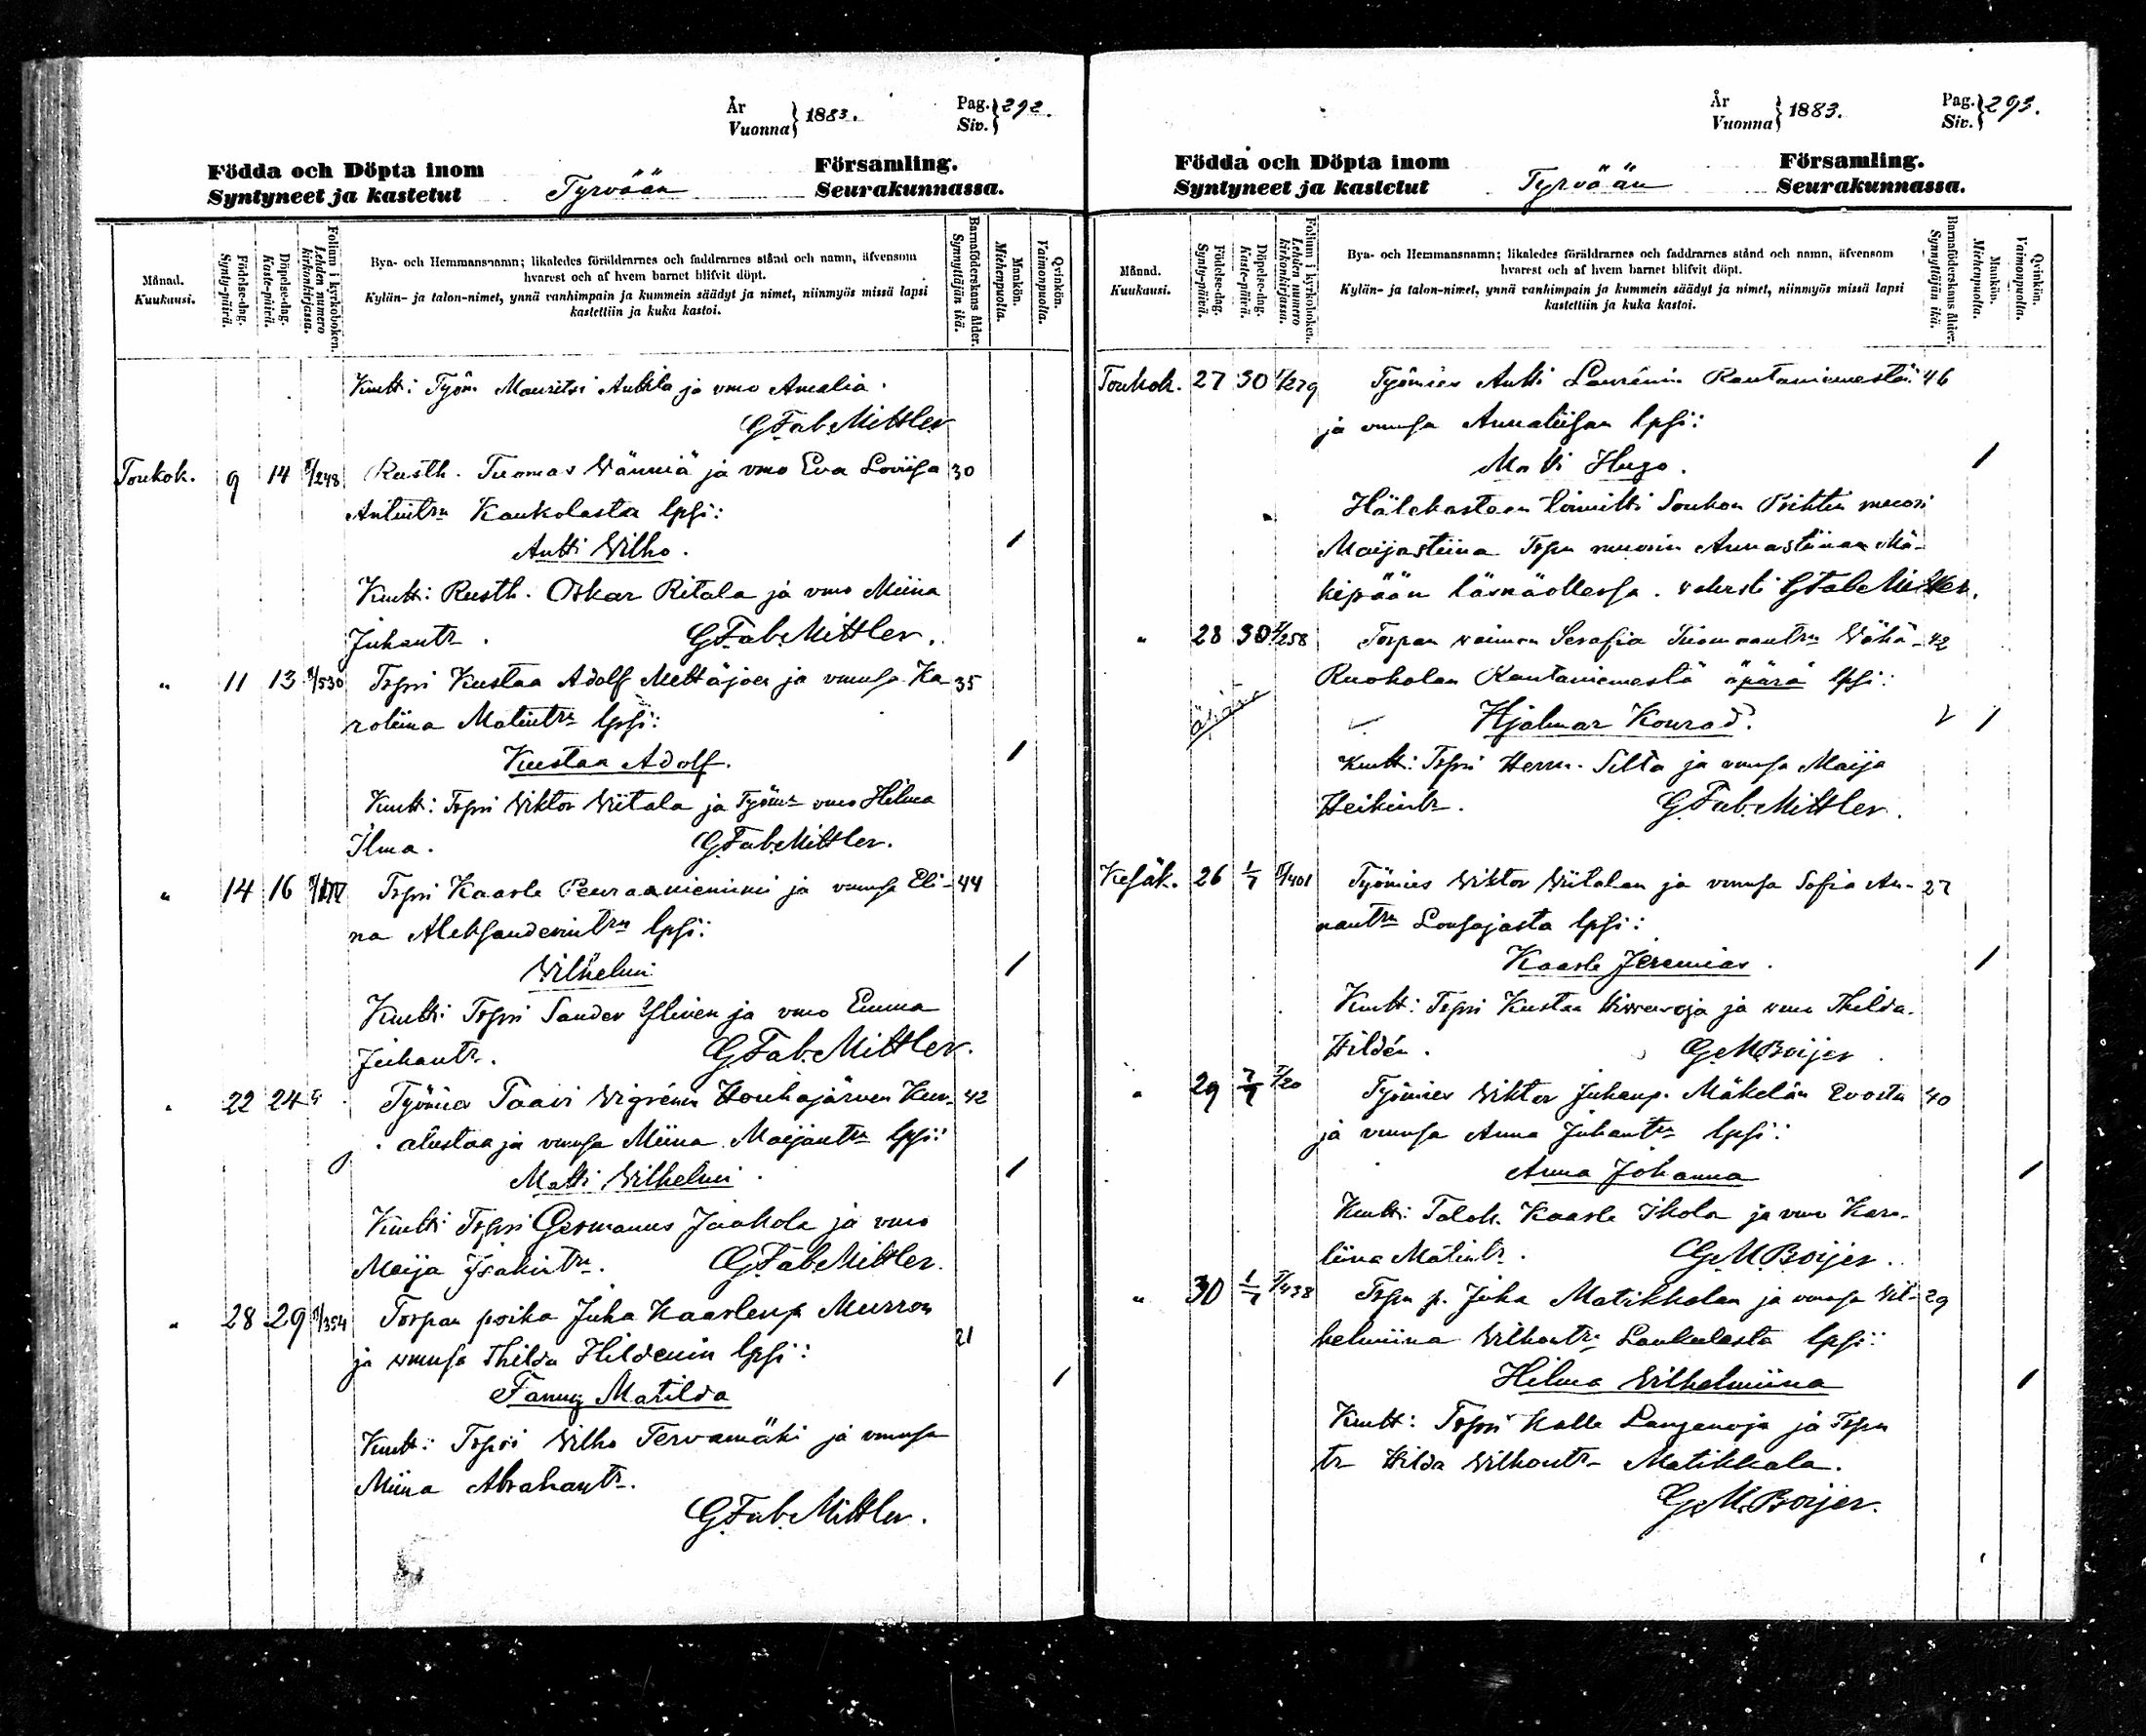 År
Vuonna } 1883.
Pag.
Siv. } 292.
Födda och Döpta inom
Syntyneet ja kastetut
Tyrvään
Församling.
Seurakunnassa.
Månad.
Kuukausi.
Födelse-dag.
Synty-päivä.
Döpelse-dag.
Kaste-päivä.
Folium i kyrkoboken.
Lehden numero
kirkonkirjassa.
Bya- och Hemmansnamn; likaledes föräldrarnes och faddrarnes stånd och namn, äfvensom
hvarest och af hvem barnet blifvit döpt.
Kylän- ja talon-nimet, ynnä vanhimpain ja kummein säädyt ja nimet, niinmyös missä lapsi
kastettiin ja kuka kastoi.
Barnaföderskans ålder.
Synnyttäjän ikä.
Mankön.
Miehenpuolta.
Qvinkön.
Vaimonpuolta.
Kmtt: Työm. Mauritsi Anttila ja vmo Amalia.
G. Fab. Mittler
Toukok. 9 14 /248 Rusth. Tuomas Wänniä ja vmo Eva Loviisa 30
Antintr. Kaukolasta lpsi:
Antti Wilho.
Kmtt: Rusth. Oskar Ritala ja vmo Miina
Juhantr. G. Fab. Mittler.
" 11 13 /530 Tspri Kustaa Adolf Mettäjoen ja vmsa Ka- 35
roliina Matintr. lpsi:
Kustaa Adolf.
Kmtt: Tspri Wiktor Wiitala ja Työm. vmo Hilma
Ilma. G. Fab. Mittler.
" 14 16 Tspri Kaarle Peuraaniemini ja vmsa Eli- 44
na Aleksanderintr. lpsi:
Wilhelmi
Kmtt: Tspri Sander Yliven ja vmo Emma
Juhantr. G. Fab. Mittler.
" 22 24 Työmies Taavi Wigrénin Houhajärven 42
alustaa ja vmsa Miina Maijantr. lpsi:
Matti Wilhelmi.
Kmtt: Tspri Germanus Jaakola ja vmo
Maija Isakintr. G. Fab. Mittler.
" 28 29 /354 Torpan poika Juha Kaarlenp. Murron
ja vmsa Thilda Hildenin lpsi: 21
Fanny Matilda
Kmtt: Tspri Wilho Tervamäki ja vmsa
Miina Abrahamtr.
G. Fab. Mittler.
År
Vuonna } 1883.
Pag.
Siv. } 293.
Födda och Döpta inom
Syntyneet ja kastetut
Tyrvään
Församling.
Seurakunnassa.
Månad.
Kuukausi.
Födelse-dag.
Synty-päivä.
Döpelse-dag.
Kaste-päivä.
Folium i kyrkoboken.
Lehden numero
kirkonkirjassa.
Bya- och Hemmansnamn; likaledes föräldrarnes och faddrarnes stånd och namn, äfvensom
hvarest och af hvem barnet blifvit döpt.
Kylän- ja talon-nimet, ynnä vanhimpain ja kummein säädyt ja nimet, niinmyös missä lapsi
kastettiin ja kuka kastoi.
Barnaföderskans ålder.
Synnyttäjän ikä.
Mankön.
Miehenpuolta.
Qvinkön.
Vaimonpuolta.
Toukok. 27 30 /279 Työmies Antti Laurénin Rautaniemestä 46
ja vmsa Annaliisan lpsi:
Matti Hugo.
Hätäkasteen toimitti Soukon Prihtin muori
Maijastiina Tspn muorin Annastiinan Mä-
kipään läsnäollessa. vahvisti G. Fab. Mittler.
" 28 30 /258 Torpan vaimon Serafia Tuomaantr. Wähä- 42
Ruoholan Rautaniemestä äpärä lpsi:
äpärä Hjalmar Konrad.
Kmtt: Tspri Herm. Silta ja vmsa Maija
Heikintr. G. Fab. Mittler.
Kesäk. 26 1/7 /401 Työmies Wiktor Wiitalan ja vmsa Sofia An- 27
nantr. Lousajasta lpsi:
Kaarle Jeremias.
Kmtt: Tspri Kustaa Hirvenoja ja vmo Thilda
Hildén. G. M. Boijer
" 29 7/7 /20 Työmies Wiktor Juhanp. Mäkelän Evosta 40
ja vmsa Anna Juhantr. lpsi:
Anna Johanna
Kmtt: Talok. Kaarle Ikola ja vmo Karo-
liina Matintr. G. M. Boijer.
" 30 1/7 /438 Tspn p. Juha Matikkalan ja vmsa Wil- 29
helmiina Wilhontr. Laukulasta lpsi:
Hilma Wilhelmiina
Kmtt: Tspri Kalle Langanoja ja Tspn
tr. Hilda Wilhontr. Matikkala.
G. M. Boijer.